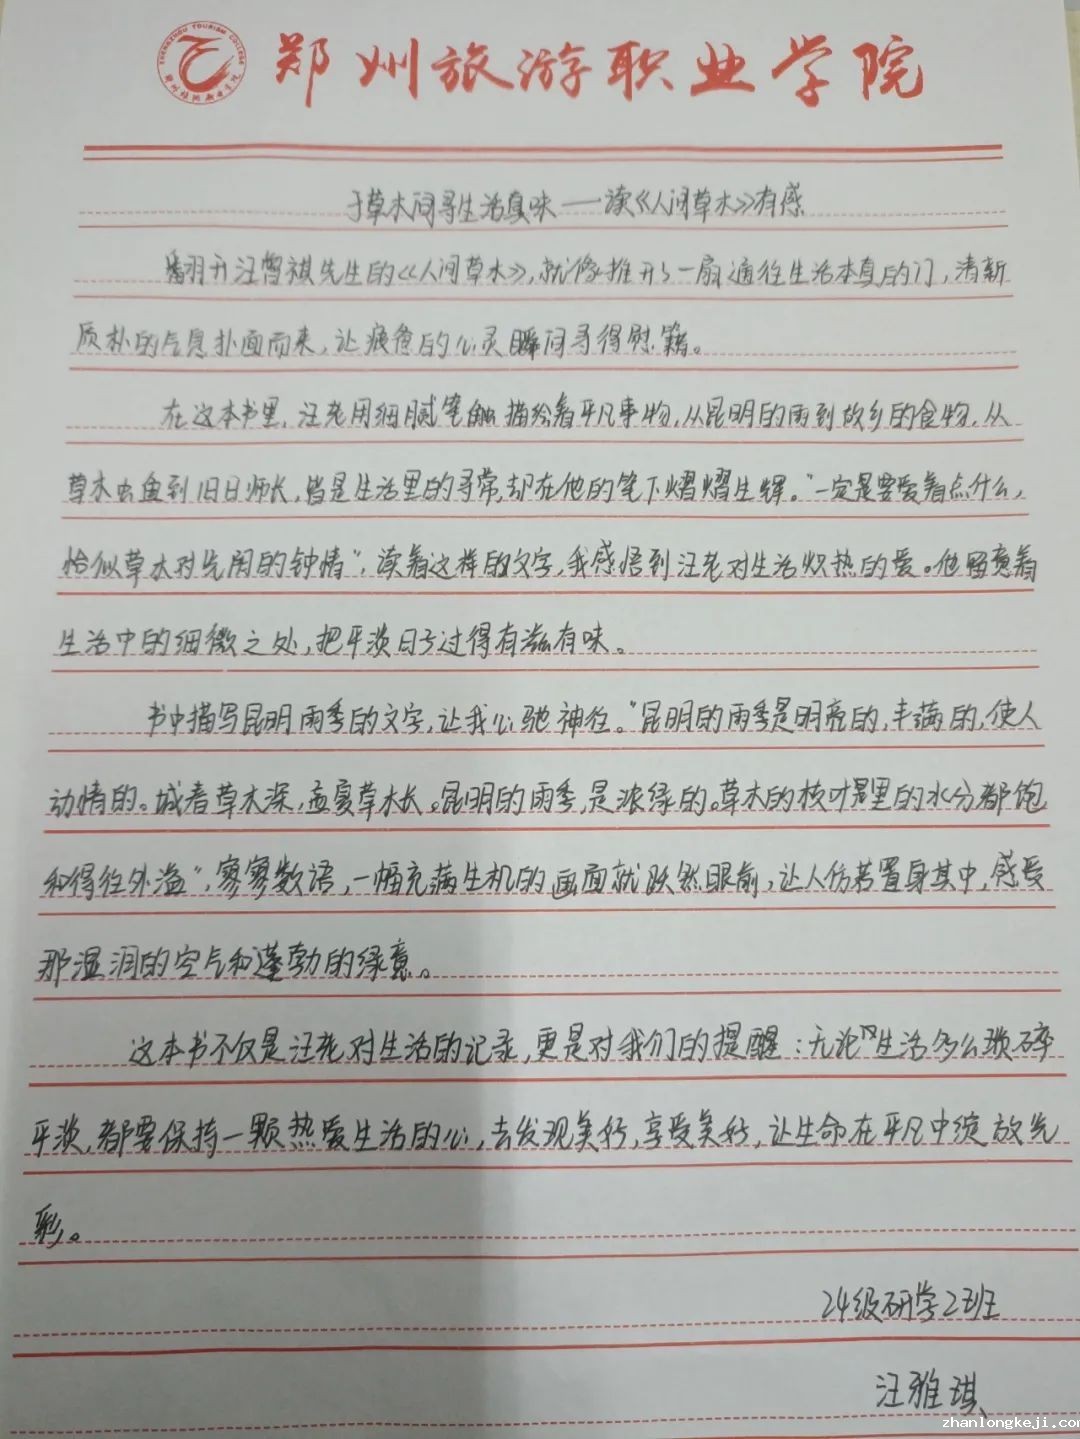 ZHENGZHOU TOURISM COLLEGE
郑州旅游职业学院
郑州旅游职业学院
于草木间寻生活真味——读《人间草木》有感
翻开汪曾祺先生的《人间草木》，就像推开了一扇通往生活本真的门，清新
质朴的气息扑面而来，让疲惫的心灵瞬间寻得慰籍。
在这本书里，汪老用细腻笔触描绘着平凡事物，从昆明的雨到故乡的食物，从
草木虫鱼到旧日师长，皆是生活里的寻常，却在他的笔下熠熠生辉。“一定是要爱着点什么，
恰似草木对光阴的钟情”，读着这样的文字，我感悟到汪老对生活炽热的爱。他留意着
生活中的细微之处，把平淡日子过得有滋有味。
书中描写昆明雨季的文字，让我心驰神往。“昆明的雨季是明亮的，丰满的，使人
动情的。城春草木深，孟夏草木长。昆明的雨季，是浓绿的。草木的枝叶里的水分都饱
和得往外溢”，寥寥数语，一幅充满生机的画面就跃然眼前，让人仿若置身其中，感受
那湿润的空气和蓬勃的绿意。
这本书不仅是汪老对生活的记录，更是对我们的提醒：无论生活多么琐碎
平淡，都要保持一颗热爱生活的心，去发现美好，享受美好，让生命在平凡中绽放光
彩。
24级研学2班
汪雅琪
zhanlongkeji.com